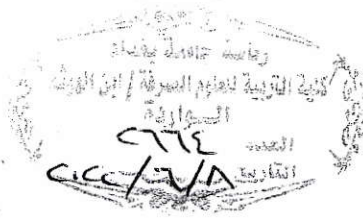 رئاسة جامعة بغداد
كلية التربية للعلوم الصرفة / ابن الهيثم
الـــواردة
العدد ٢٦٦٤
التاريخ ٢٠٢٢/٦/٨